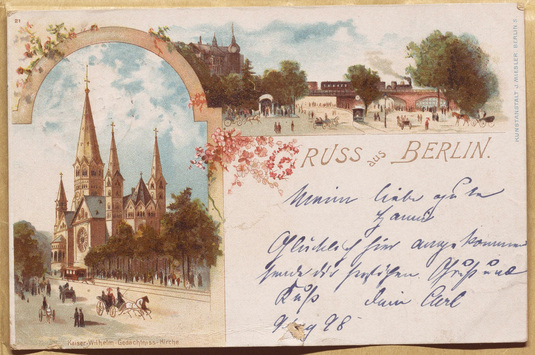 21
GRUSS aus BERLIN.
KUNSTANSTALT J. MIESLER, BERLIN S.
Meine liebe gute
Hanni
Glücklich hier angekommen
sende dir herzlichen Gruß und
Kuß dein Carl
9/ 98
Kaiser-Wilhelm-Gedächtniss-Kirche